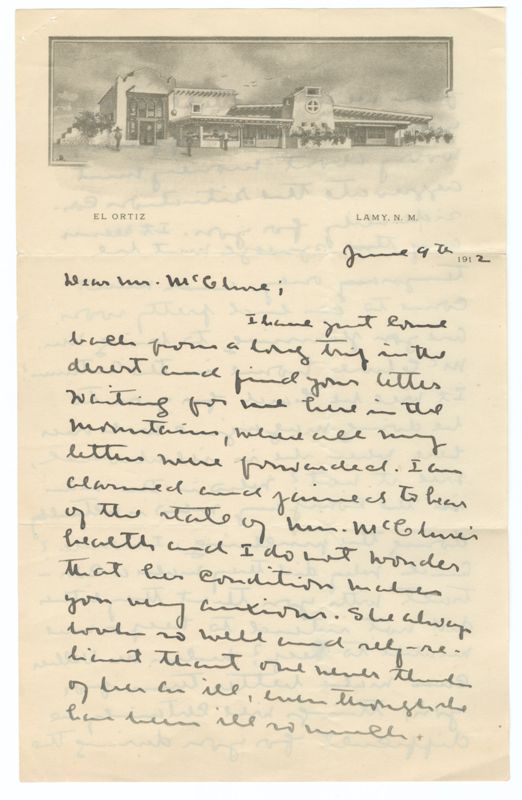 EL ORTIZ
LAMY, N. M.
June 9th 1912
Dear Mr. McClure;
I have just come
back from a long trip in the
desert and find your letter
waiting for me here in the
mountains, where all my
letters were forwarded. I am
alarmed and pained to hear
of the state of Mrs. McClure's
health and I do not wonder
that her condition makes
you very anxious. She always
looks so well and self-re-
liant that one never thinks
of her as ill, even though she
has been ill so much.